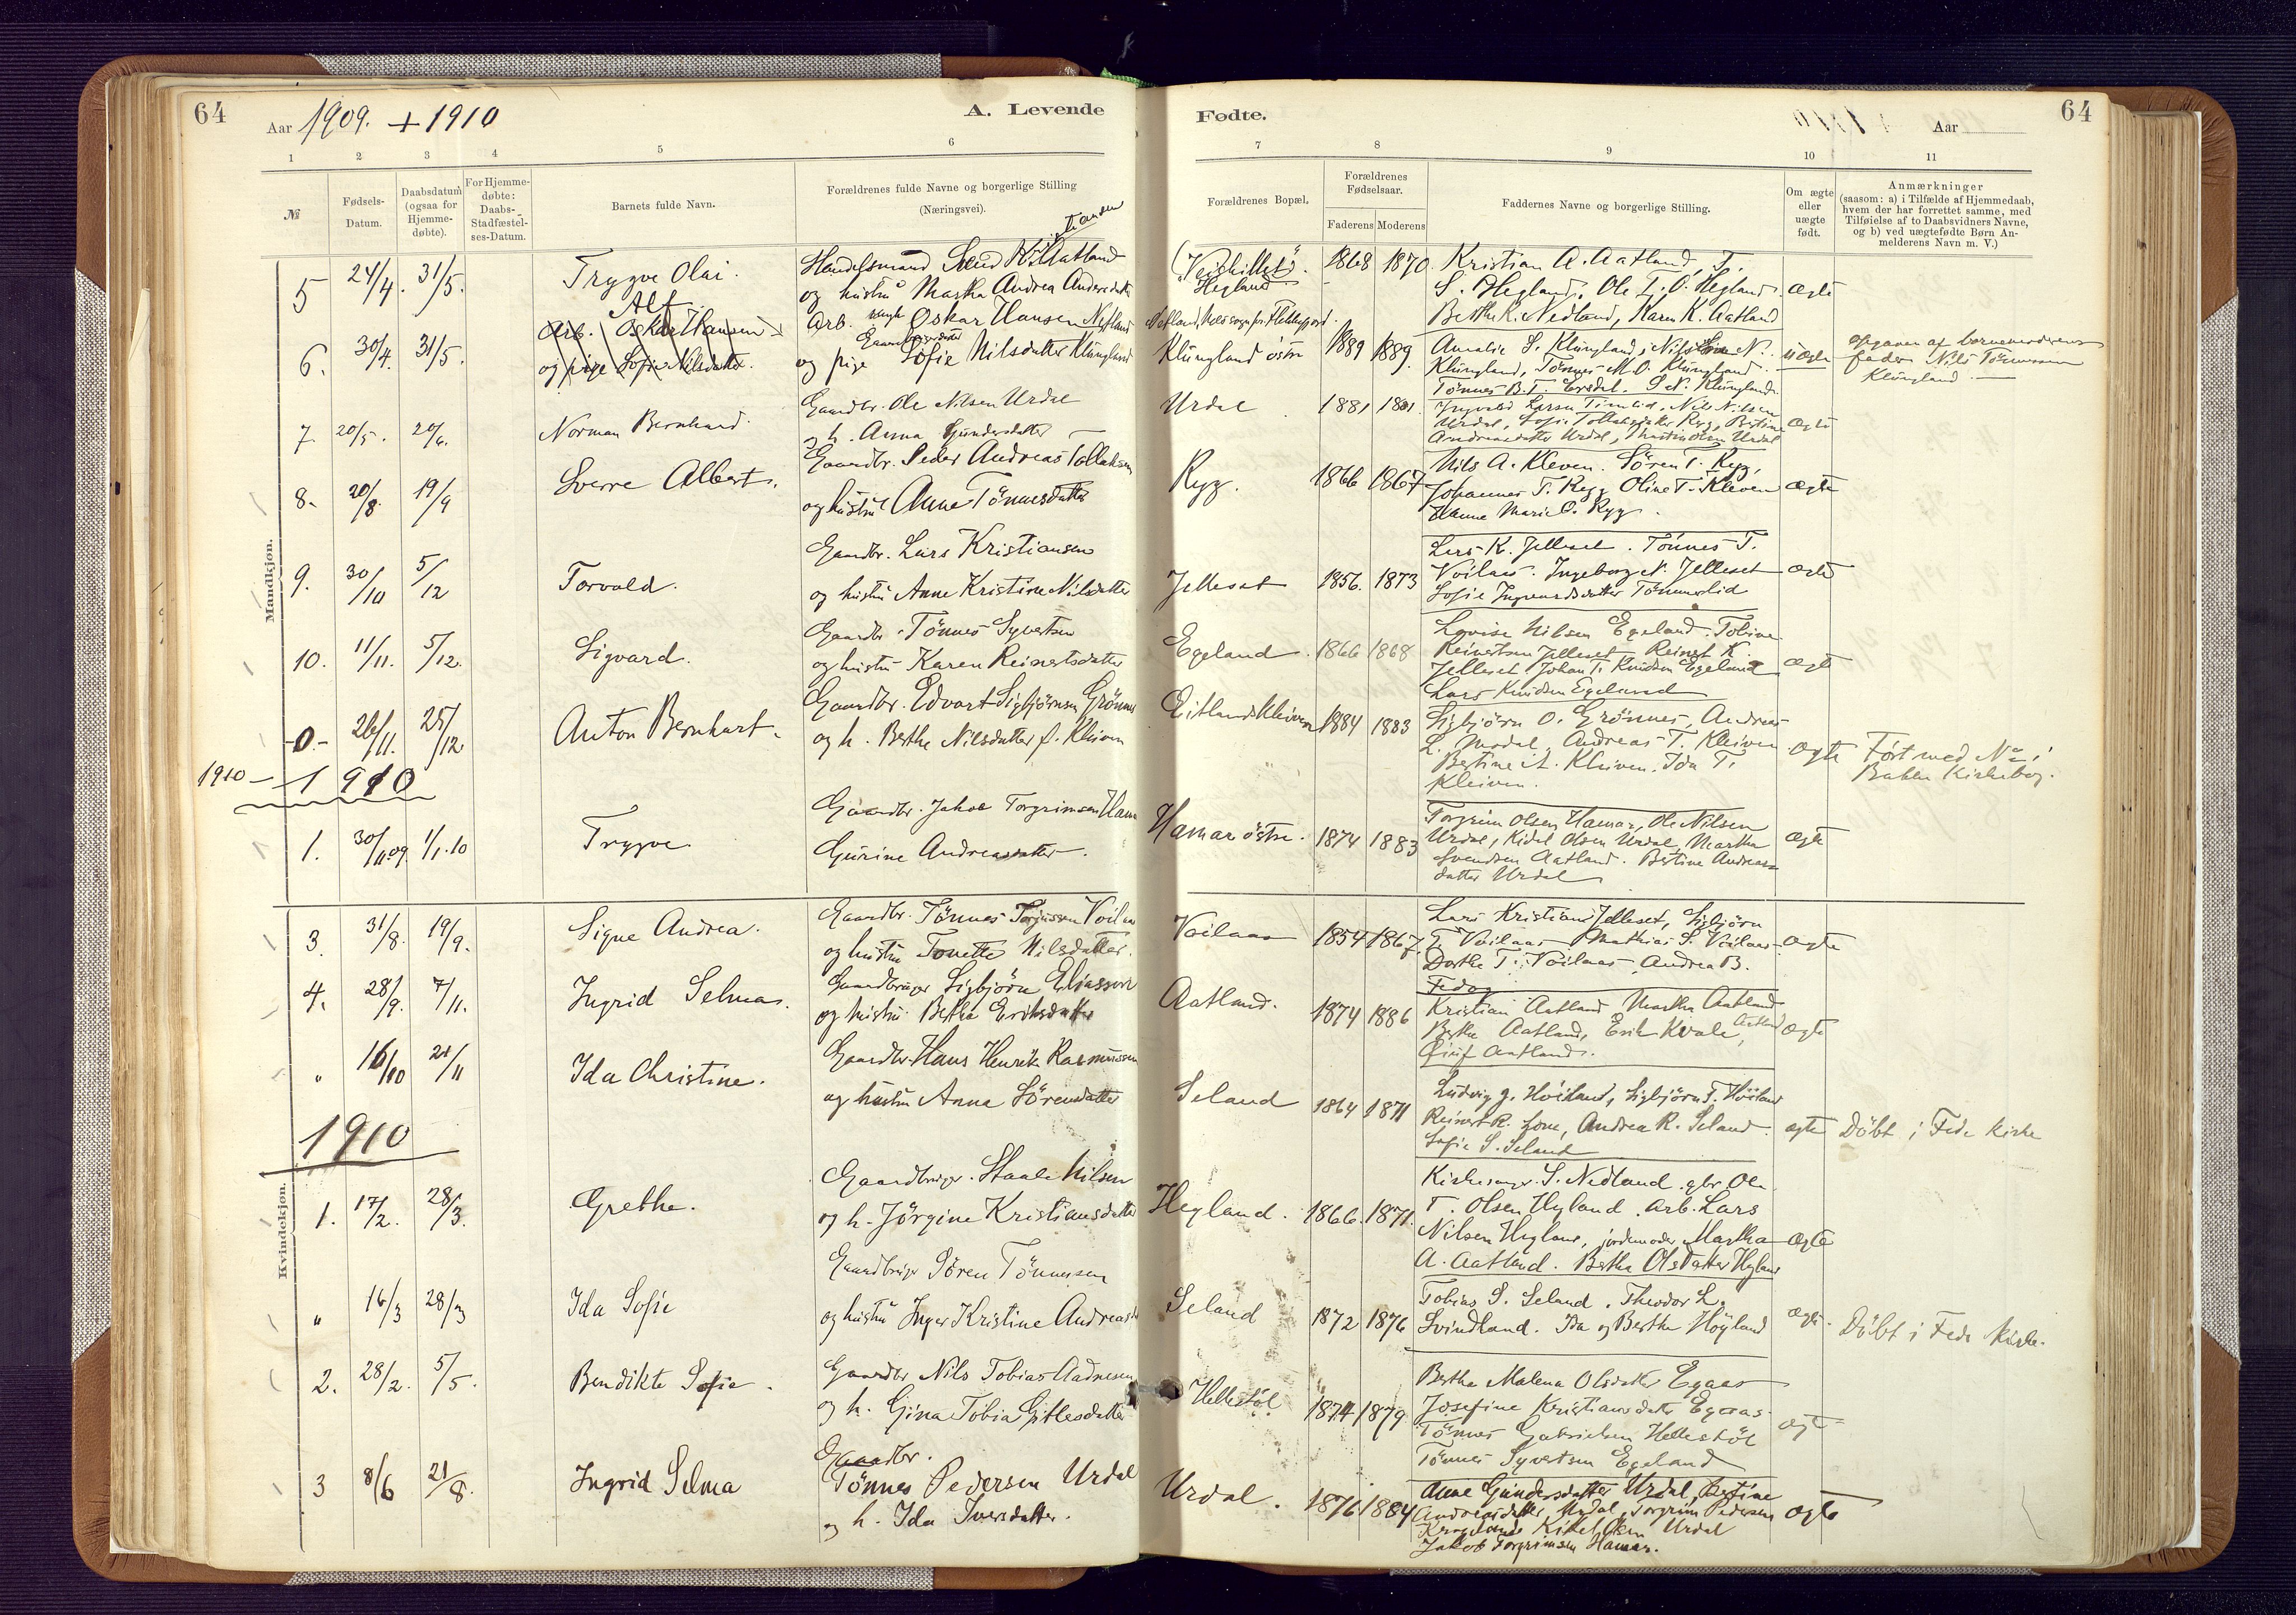 64
Aar 1909. + 1910
A. Levende
Fødte.
Aar
64
1 2 3 4 5 6 7 8 9 10 11
№
Fødsels-
Datum.
Daabsdatum
(ogsaa for
Hjemme-
døbte).
For Hjemme-
døbte:
Daabs-
Stadfæstel-
ses-Datum.
Barnets fulde Navn.
Forældrenes fulde Navne og borgerlige Stilling
(Næringsvei).
Forældrenes Bopæl,
Forældrenes
Fødselsaar.
Faderens Moderens
Faddernes Navne og borgerlige Stilling.
Om ægte
eller
uægte
født.
Anmærkninger
(saasom: a) i Tilfælde af Hjemmedaab,
hvem der har forrettet samme, med
Tilføielse af to Daabsvidners Navne,
og b) ved uægtefødte Børn An-
melderens Navn m. V.)
Mandkjøn.
5 24/4. 31/5. Trygve Olai.
Handelsmand
og hustru Martha Andrea Andersdatter
Hegland
1868 1870.
Kristian A. Aatland, T.
S. Hegland, Ole T. O. Hegland
Berthe K. Nedland, Karen K. Aatland
ægte
6. 30/4. 31/5. Alf
Arb. Oskar Hansen
og pige Sofie Nilsdatter.
Arb. Oskar Hansen
og pige Sofie Nilsdatter Klungland
Klungland östre
1889 1889.
Amalie S. Klungland,
Klungland, Tönnes M. O. Klungland
Tönnes B. T. S. N. Klungland
uægte
opgaven af barnemoderens
fader Nils Tönnessen
Klungland.
7. 20/5. 20/6. Norman Bernhard.
Gaardbr. Ole Nilsen Urdal
og h. Anna Gundersdatter
Urdal
1881 1881
Ingvald Larsen Nils Nilsen
Urdal, Sofie Ryg, Bertine
Andreasdatter Urdal, Olsen Urdal
ægte
8. 20/8. 19/9 Sverre Albert.
Gaardbr. Peder Andreas Tollaksen
og hustru Anne Tönnesdatter
Ryg.
1866 1867
Nils A. Kleven. Sören T. Ryg,
Johannes T. Ryg Oline T. Kleven
Hanne Marie O. Ryg.
ægte
9. 30/10 5/12 Torvald.
Gaardbr. Lars Kristiansen
og hustru Anne Kristine Nilsdatter
Jelleset
1856. 1873
Lars K. Jelleset. Tönnes T.
Voilaas. Ingeborg N. Jelleset
Sofie Tönneslid
ægte
10. 11/11. 5/12. Sigvard.
Gaardbr. Tönnes Syvertsen
og hustru Karen Reinertsdatter
Egeland.
1866 1868
Lovise Nilsen Egeland. Tobine
Reinertsen Jelleset Reinert K.
Jelleset Johan T. Knudsen Egeland
Lars Knudsen Egeland
ægte
-0- 26/11. 25/12 Anton Bernhart.
Gaardbr. Edvart Sigbjörnsen Grönnes
og h. Berthe Nilsdatter f. Kleiven
Eitlandskleiven
1884 1883
Sigbjörn O. Grönnes, Andreas
L. Modal, Andreas T. Kleiven
Bertine A. Kleiven. Ida T.
Kleiven.
ægte
Ført med No i
Bakke Kirkebog.
1910 - 1910
1. 30/11 09 1/1.10 Trygve
Gaardbr. Jakob Torgrimsen Hamar
Gurine Andreasdatter.
Hamar östre.
1874 1883
Torgrim Olsen Hamar, Ole Nilsen
Urdal, Kidel Olsen Urdal, Martha
Svendsen Aatland. Bertine Andreas-
datter Urdal
ægte
Kvindekjøn.
3. 31/8. 19/9. Signe Andrea.
Gaardbr. Tönnes Torjussen Voilaas
og hustru Tonette Nilsdatter.
Voilaas
1854 1867.
Lars Kristians Jelleset, Sigbjörn
T. Voilaas Mathias S. Voilaas
Dorthe T. Voilaas Andrea B.
Feda
ægte
4. 28/9. 7/11. Ingrid Selma.
Gaardbruger Sigbjörn Eliassen
og hustru Bertha Eriksdatter
Aatland.
1874 1886
Kristian Aatland Martha Aatland
Berthe Aatland, Erik Kvale, Aatland
Aatland.
ægte
" 16/10 21/11 Ida Christine.
Gaardbr. Hans Henrik Rasmussen
og hustru Anna Sörensdatter
Seland
1864 1871
Ludvig G. Höiland, Sigbjörn T. Höiland
Reinert R. Lone, Andrea R. Seland
Sofie S. Seland
ægte
Döbt i Feda Kirke
1910
1. 17/2. 28/3. Grethe.
Gaardbruger. Staale Nilsen
og h. Jörgine Kristiansdatter
Hegland.
1866. 1871.
Kirkesanger S. Nedland. gbr. Ole
T. Olsen Hegland. Arb. Lars
Nilsen Hegland, jordemoder Martha
A. Aatland. Berthe Olsdatter Hegland
ægte
" 16/3 28/3 Ida Sofie
Gaardbruger Sören Tönnesen
og hustru Inger Kristine Andreasd
Seland
1872 1876
Tobias S. Seland. Theodor L.
Svindland. Ida og Berthe Höyland
ægte.
Döbt i Feda Kirke.
2. 28/2. 5/5. Bendikte Sofie.
Gaardbr Nils Tobias Aadnesen
og h. Gina Tobia Gitlesdatter
Hellestöl
1874 1879
Berthe Malena Olsdatter Egaas
Josefine Kristiansdatter Egaas.
Tönnes Gabrielsen Hellestöl
Tönnes Syvertsen Egeland
ægte
3 8/6 21/8. Ingrid Selma
Gaardbr.
Tönnes Pedersen Urdal
og h. Ida Iversdatter.
Urdal.
1876 1884
Anne Gundersdatter Urdal, Bertine
Andreasdatter Urdal, Torgrim Pedersen
Kidel Olsen Urdal
Jakob Torgrimsen Hamar.
ægte